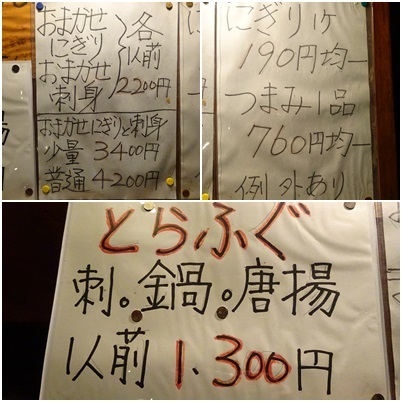 おまかせ
にぎり
おまかせ
刺身
各
1人前
2200円
おまかせにぎりと刺身
少量 3400円
普通 4200円
にぎり1ケ
190円均一
つまみ1品
760円均一
例外あり
とらふぐ
刺。鍋。唐揚
1人前 1.300円